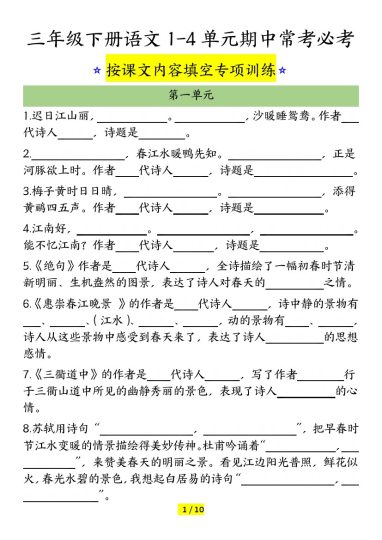 三年级下册语文 1-4 单元期中常考必考
☆按课文内容填空专项训练☆
第一单元
1.迟日江山丽，__________。______________，沙暖睡鸳鸯。作者___
代诗人______，诗题是________。
2.________________，春江水暖鸭先知。______________，正是
河豚欲上时。作者____代诗人______，诗题是________________。
3.梅子黄时日日晴，________________。______________，添得
黄鹂四五声。作者____代诗人______，诗题是____________。
4.江南好，____________。________________，________________。
能不忆江南？作者____代诗人______，诗题是__________。
5.《绝句》作者是____代诗人______，全诗描绘了一幅初春时节清
新明丽、生机盎然的图景，表达了诗人对春天的__________之情。
6.《惠崇春江晚景 》的作者是____代诗人______，诗中静的景物有
____、______、（ 江水 ）、______、______，动的景物有______、______，
诗人从这些景物中感受到春天来了，表达了诗人__________的思想
感情。
7.《三衢道中》的作者是____代诗人________，写了作者________行
于三衢山道中所见的幽静秀丽的景色，表现了诗人__________的心
情。
8.苏轼用诗句 “______________，________________”，把早春时
节江水变暖的情景描绘得美妙传神。杜甫吟诵着“____________，
____________”，来赞美春天的明丽之景。看见江边阳光普照，鲜花似
火，春光水碧的景色，我想起白居易的诗句“________________，
______________”。
1 / 10